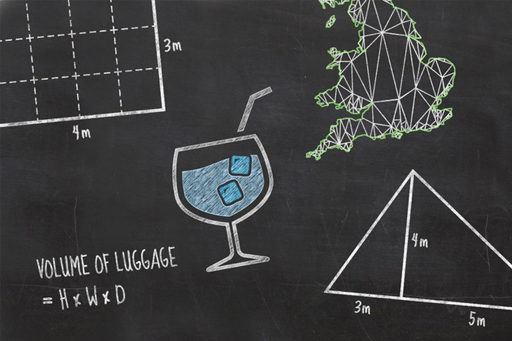 3m
4m
VOLUME OF LUGGAGE
= H x W x D
4m
3m
5m